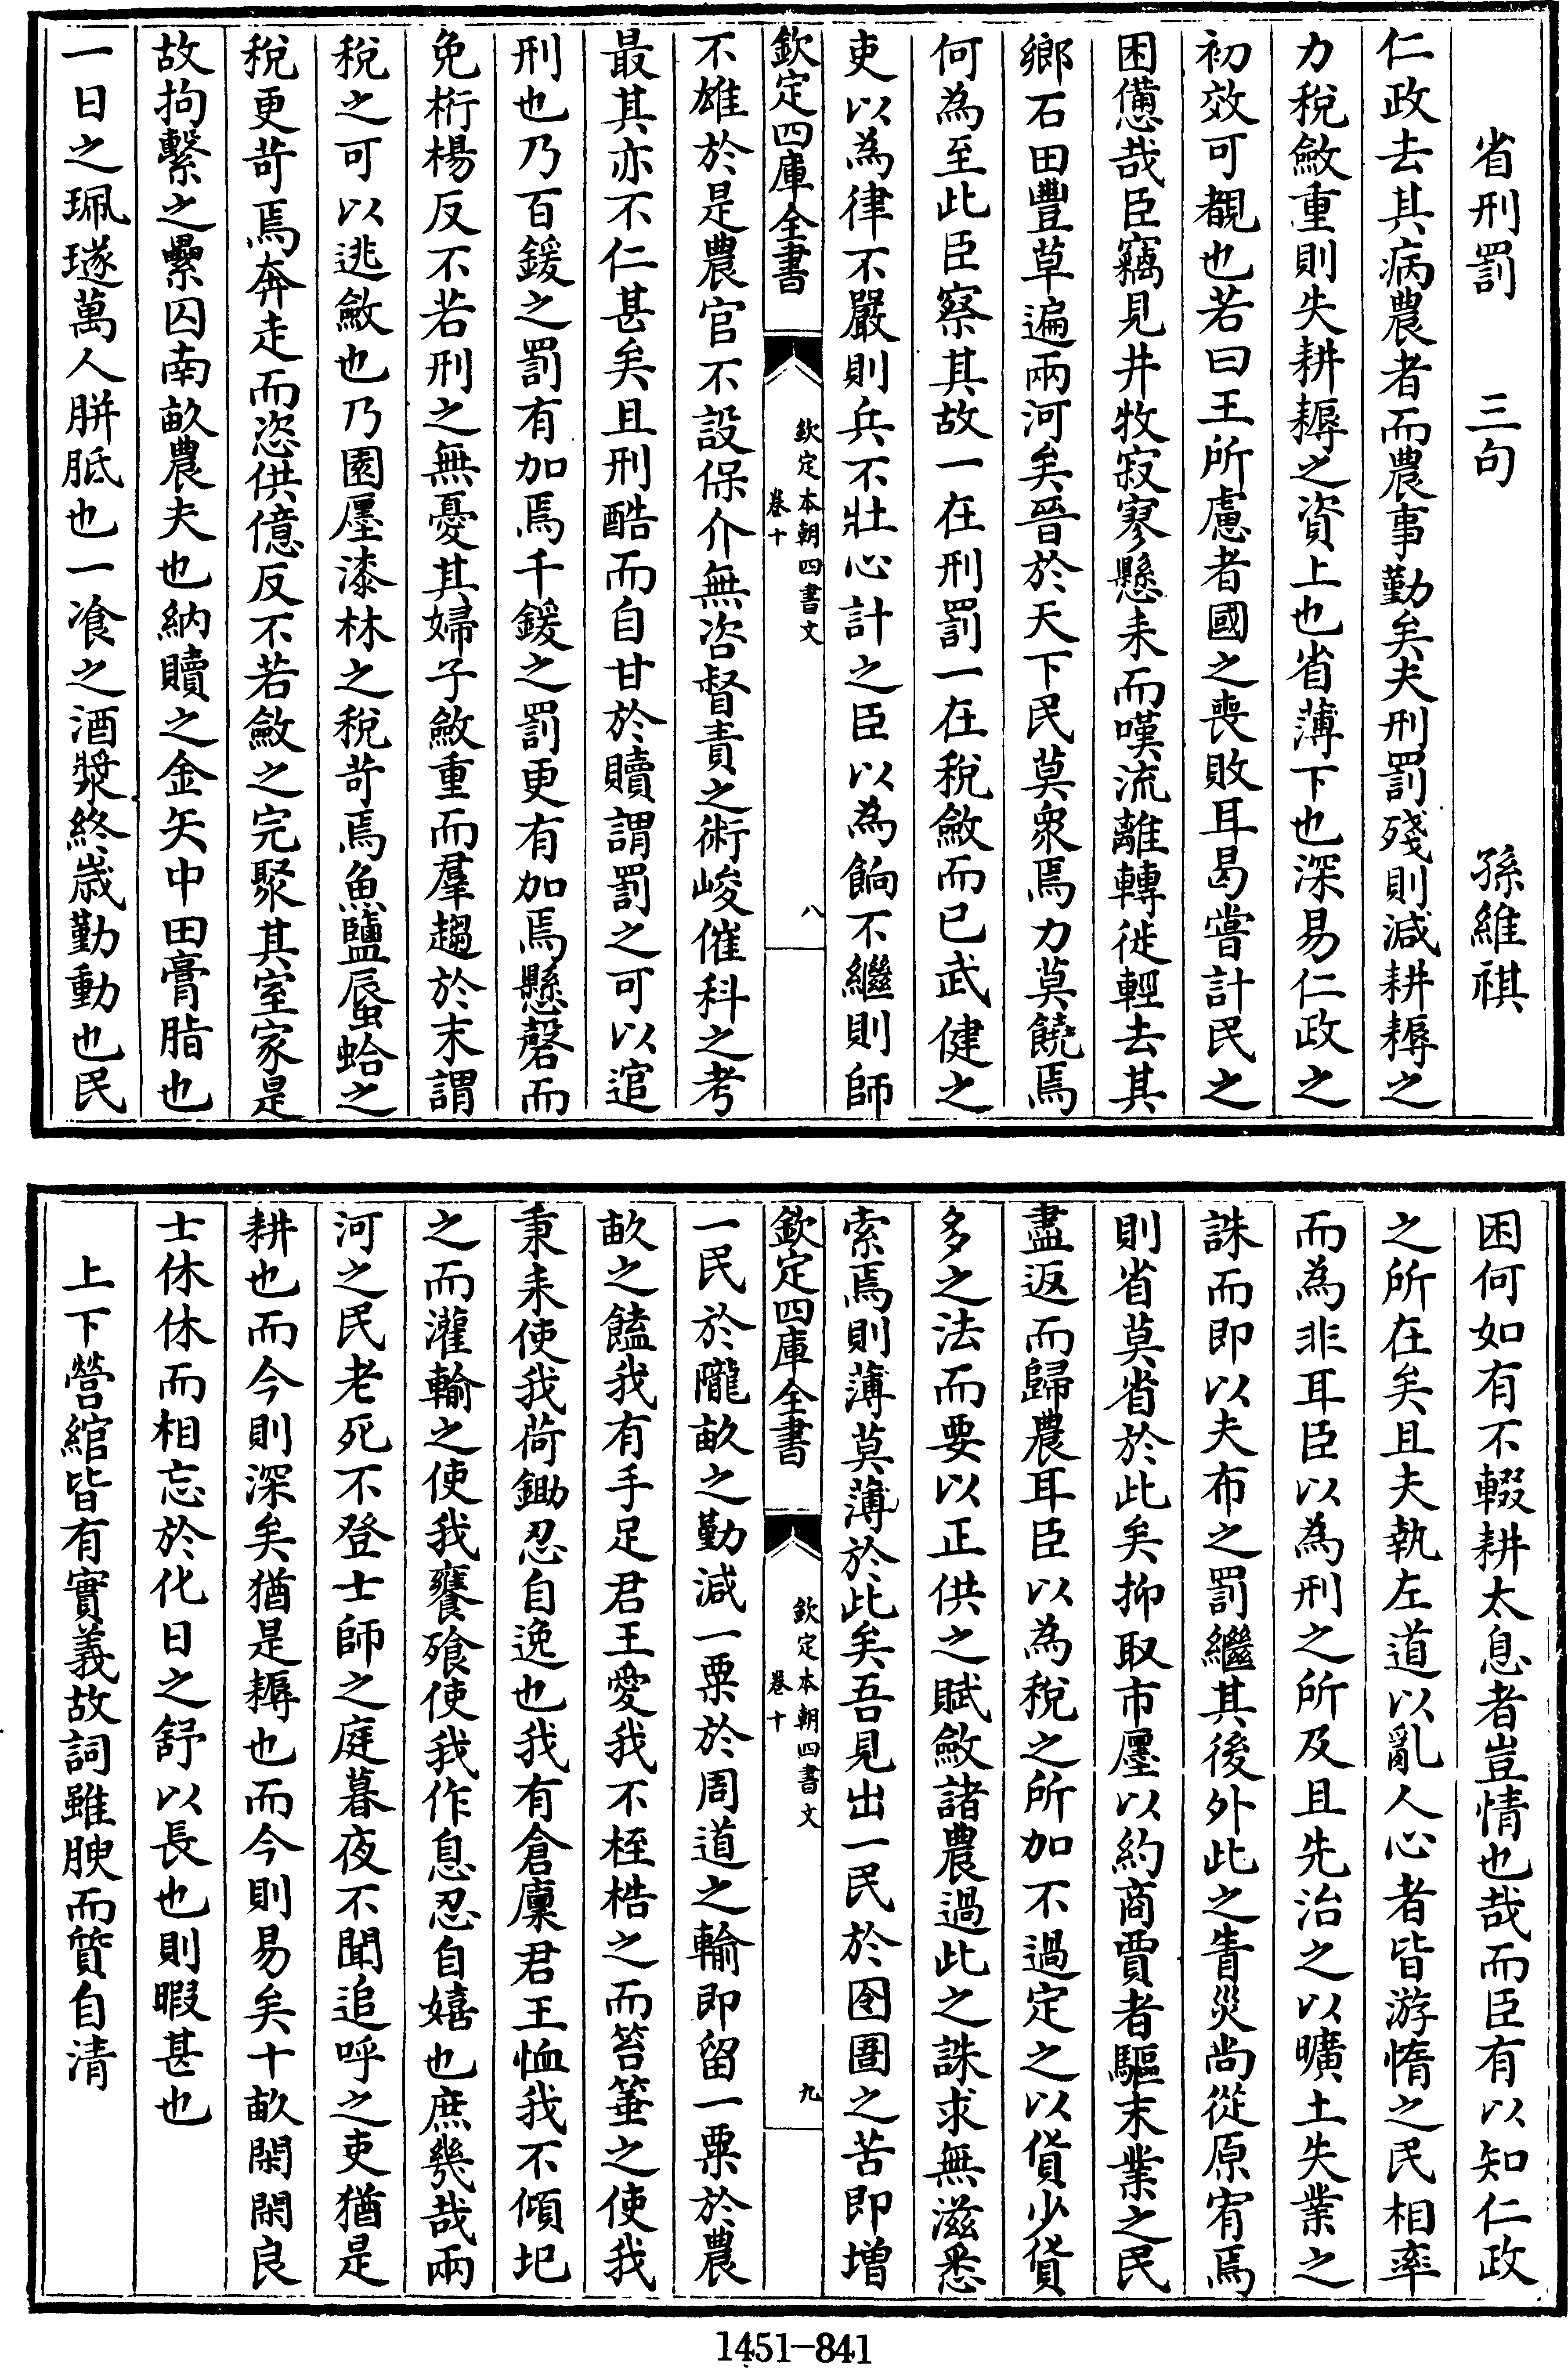 省刑罰　三句　孫維祺
仁政去其病農者而農事勤矣夫刑罰殘則減耕耨之
力稅斂重則失耕耨之資上也省薄下也深易仁政之
初效可覩也若曰王所慮者國之喪敗耳曷嘗計民之
困憊哉臣竊見井牧寂寥懸耒而嘆流離轉徙輕去其
鄉石田豐草遍兩河矣晉於天下民莫衆焉力莫饒焉
何為至此臣察其故一在刑罰一在稅斂而已武健之
吏以為律不嚴則兵不壯心計之臣以為餉不繼則師
欽定四庫全書
欽定本朝四書文
卷十
八
不雄於是農官不設保介無咨督責之術峻催科之考
最其亦不仁甚矣且刑酷而自甘於贖謂罰之可以逭
刑也乃百鍰之罰有加焉千鍰之罰更有加焉懸磬而
免桁楊反不若刑之無憂其婦子斂重而羣趨於末謂
稅之可以逃斂也乃園廛漆林之稅苛焉魚鹽蜃蛤之
稅更苛焉奔走而恣供億反不若斂之完聚其室家是
故拘繫之纍囚南畝農夫也納贖之金矢中田膏脂也
一日之珮璲萬人胼胝也一飡之酒漿終歲勤動也民
困何如有不輟耕太息者豈情也哉而臣有以知仁政
之所在矣且夫執左道以亂人心者皆游惰之民相率
而為非耳臣以為刑之所及且先治之以曠土失業之
誅而即以夫布之罰繼其後外此之眚災尚從原宥焉
則省莫省於此矣抑取市廛以約商賈者驅末業之民
盡返而歸農耳臣以為稅之所加不過定之以貨少貨
多之法而要以正供之賦斂諸農過此之誅求無滋悉
索焉則薄莫薄於此矣吾見出一民於囹圄之苦即增
欽定四庫全書
欽定本朝四書文
卷十
九
一民於隴畝之勤減一粟於周道之輸即留一粟於農
畝之饁我有手足君王愛我不桎梏之而笞箠之使我
秉耒使我荷鋤忍自逸也我有倉廩君王恤我不傾圯
之而灌輸之使我饔飱使我作息忍自嬉也庶幾哉兩
河之民老死不登士師之庭暮夜不聞追呼之吏猶是
耕也而今則深矣猶是耨也而今則易矣十畝閑閑良
士休休而相忘於化日之舒以長也則暇甚也
上下營綰皆有實義故詞雖腴而質自清
1451-841